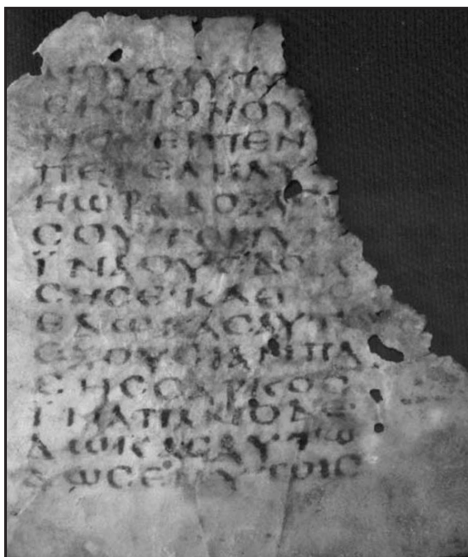 ΜΟΥϹΑΥΤΥ
ΕΙϹΤΟΝΟΥ
ΝΟΝΕΙΠΕΝ
ΠΕΡΕΛΗΛΥ
ΗΩΡΑΔΟΞΑ
ϹΟΥΤΟΝΥ
ΪΝΑΟΥϹΔΟΞΑ
ϹΗϹΕΚΑΘ
ΕΔΩΚΑϹΑΥΤΩ
ΕΞΟΥϹΙΑΝΠΑ
ϹΗϹϹΑΡΚΟϹ
ΪΝΑΠΑΝΟΔΕ
ΔΩΚΑϹΑΥΤΩ
ΔΩϹΕΙΑΥΤΟΙϹ